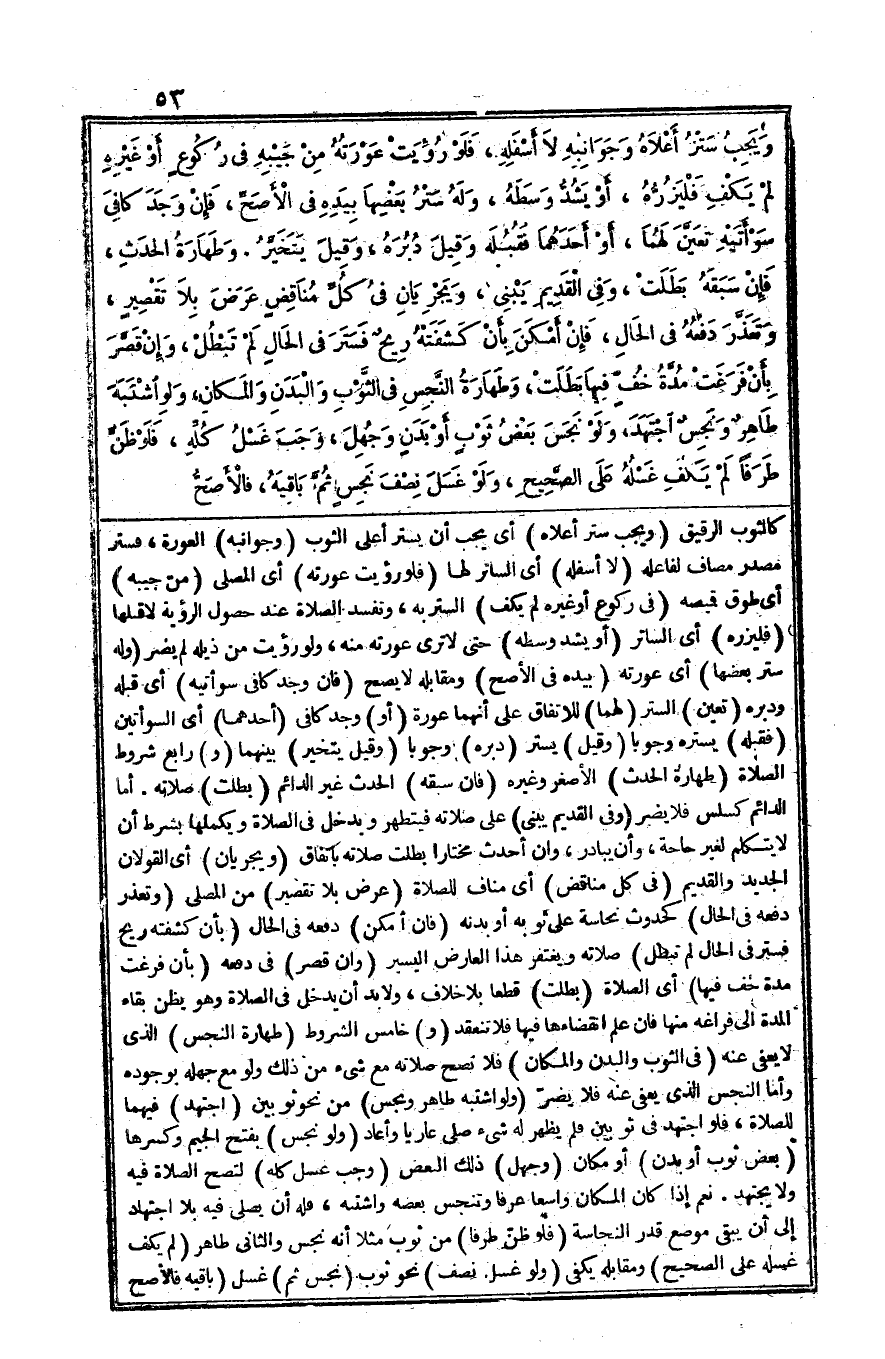 ٥٣
وَيَجِبُ سَتْرُ أَعْلَاهُ وَجَوَانِبِهِ لاَ أَسْفَلِهِ ، فَلَوْ رُؤِيَتْ عَوْرَتُهُ مِنْ جَيْبِهِ فِى رُكُوعٍ أَوْ غَيْرِهِ
لَمْ يَكْفِ فَلْيَزُرَّهُ ، أَوْ يَشُدَّ وَسَطَهُ ، وَلَهُ سَتْرُ بَعْضِهَا بِيَدِهِ فِى الْأَصَحِّ ، فَإِنْ وَجَدَ كَافِىَ
سَوْأَتَيْهِ تَعَيَّنَ لَهُمَا ، أَوْ أَحَدَهُمَا فَقُبُلَهُ وَقِيلَ دُبُرَهُ ، وَقِيلَ يَتَخَيَّرُ . وَطَهَارَةُ الْحَدَثِ ،
فَإِنْ سَبَقَهُ بَطَلَتْ ، وَفِى الْقَدِيمِ يَبْنِى ، وَيَجْرِيَانِ فِى كُلِّ مُنَاقِضٍ عَرَضَ بِلاَ تَقْصِيرٍ ،
وَتَعَذَّرَ دَفْعُهُ فِى الحَالِ ، فَإِنْ أَمْكَنَ بِأَنْ كَشَفَتْهُ رِيحٌ فَسَتَرَ فِى الْحَالِ لَمْ تَبْطُلْ ، وَإِنْ قَصَّرَ
بِأَنْ فَرَغَتْ مُدَّةُ خُفٍّ فِيهَا بَطَلَتْ ، وَطَهَارَةُ النَّجِسِ فِى الثَّوْبِ وَالْبَدَنِ وَالْمَكَانِ ، وَلَوِ اشْتَبَهَ
طَاهِرٌ وَنَجِسٌ اجْتَهَدَ ، وَلَوْ نَجِسَ بَعْضُ ثَوْبٍ أَوْ بَدَنٍ وَجُهِلَ ، وَجَبَ غَسْلُ كُلِّهِ ، فَلَوْ ظَنَّ
طَرَفًا لَمْ يَكْفِ غَسْلُهُ عَلَى الصَّحِيحِ ، وَلَوْ غَسَلَ نِصْفَ نَجِسٍ ثُمَّ بَاقِيَهُ ، فَالْأَصَحُّ
كالثوب الرقيق (ويجب ستر أعلاه) أى يجب أن يستر أعلى الثوب (وجوانبه) العورة ، فستر
مصدر مصاف لفاعله (لا أسفله) أى الساتر لها (فلو رؤيت عورته) أى المصلى (من جيبه)
أى طوق قميصه (فى ركوع أوغيره لم يكف) الستر به ، وتفسد الصلاة عند حصول الرؤية لاقبلها
(فليزره) أى الساتر (أو يشد وسطه) حتى لاترى عورته منه ، ولو رؤيت من ذيله لم يضر (وله
ستر بعضها) أى عورته (بيده فى الأصح) ومقابله لايصح (فان وجد كافى سوأتيه) أى قبله
ودبره (تعين) الستر (لهما) للاتفاق على أنهما عورة (أو) وجد كافى (أحدهما) أى السوأتين
(فقبله) يستره وجوبا (وقيل) يستر (دبره) وجوبا (وقيل يتخير) بينهما (و) رابع شروط
الصلاة (طهارة الحدث) الأصغر وغيره (فان سبقه) الحدث غير الدائم (بطلت) صلاته . أما
الدائم كسلس فلا يضر (وفى القديم يبنى) على صلاته فيتطهر ويدخل فى الصلاة ويكملها بشرط أن
لايتكلم لغير حاجة ، وأن يبادر ، وان أحدث مختارا بطلت صلاته باتفاق (ويجريان) أى القولان
الجديد والقديم (فى كل مناقض) أى مناف للصلاة (عرض بلا تقصير) من المصلى (وتعذر
دفعه فى الحال) كحدوث نجاسة على ثوبه أو بدنه (فان أمكن) دفعه فى الحال (بأن كشفته ريح
فستر فى الحال لم تبطل) صلاته ويغتفر هذا العارض اليسير (وان قصر) فى دفعه (بأن فرغت
مدة خف فيها) أى الصلاة (بطلت) قطعا بلاخلاف ، ولابد أن يدخل فى الصلاة وهو يظن بقاء
المدة الى فراغه منها فان علم انقضاءها فيها فلا تنعقد (و) خامس الشروط (طهارة النجس) الذى
لايعفى عنه (فى الثوب والبدن والمكان) فلا تصح صلاته مع شىء من ذلك ولو مع جهله بوجوده
وأما النجس الذى يعفى عنه فلا يضرّ (ولو اشتبه طاهر ونجس) من نحو ثوبين (اجتهد) فيهما
للصلاة ، فلو اجتهد فى ثوبين فلم يظهر له شىء صلى عاريا وأعاد (ولو نجس) بفتح الجيم وكسرها
(بعض ثوب أو بدن) أو مكان (وجهل) ذلك البعض (وجب غسل كله) لتصح الصلاة فيه
ولا يجتهد . نعم إذا كان المكان واسعا عرفا وتنجس بعضه واشتبه ، فله أن يصلى فيه بلا اجتهاد
إلى أن يبقى موضع قدر النجاسة (فلو ظنّ طرفا) من ثوب مثلا أنه نجس والثانى طاهر (لم يكف
غسله على الصحيح) ومقابله يكفى (ولو غسل نصف) نحو ثوب (نجس ثم) غسل (باقيه فالأصح